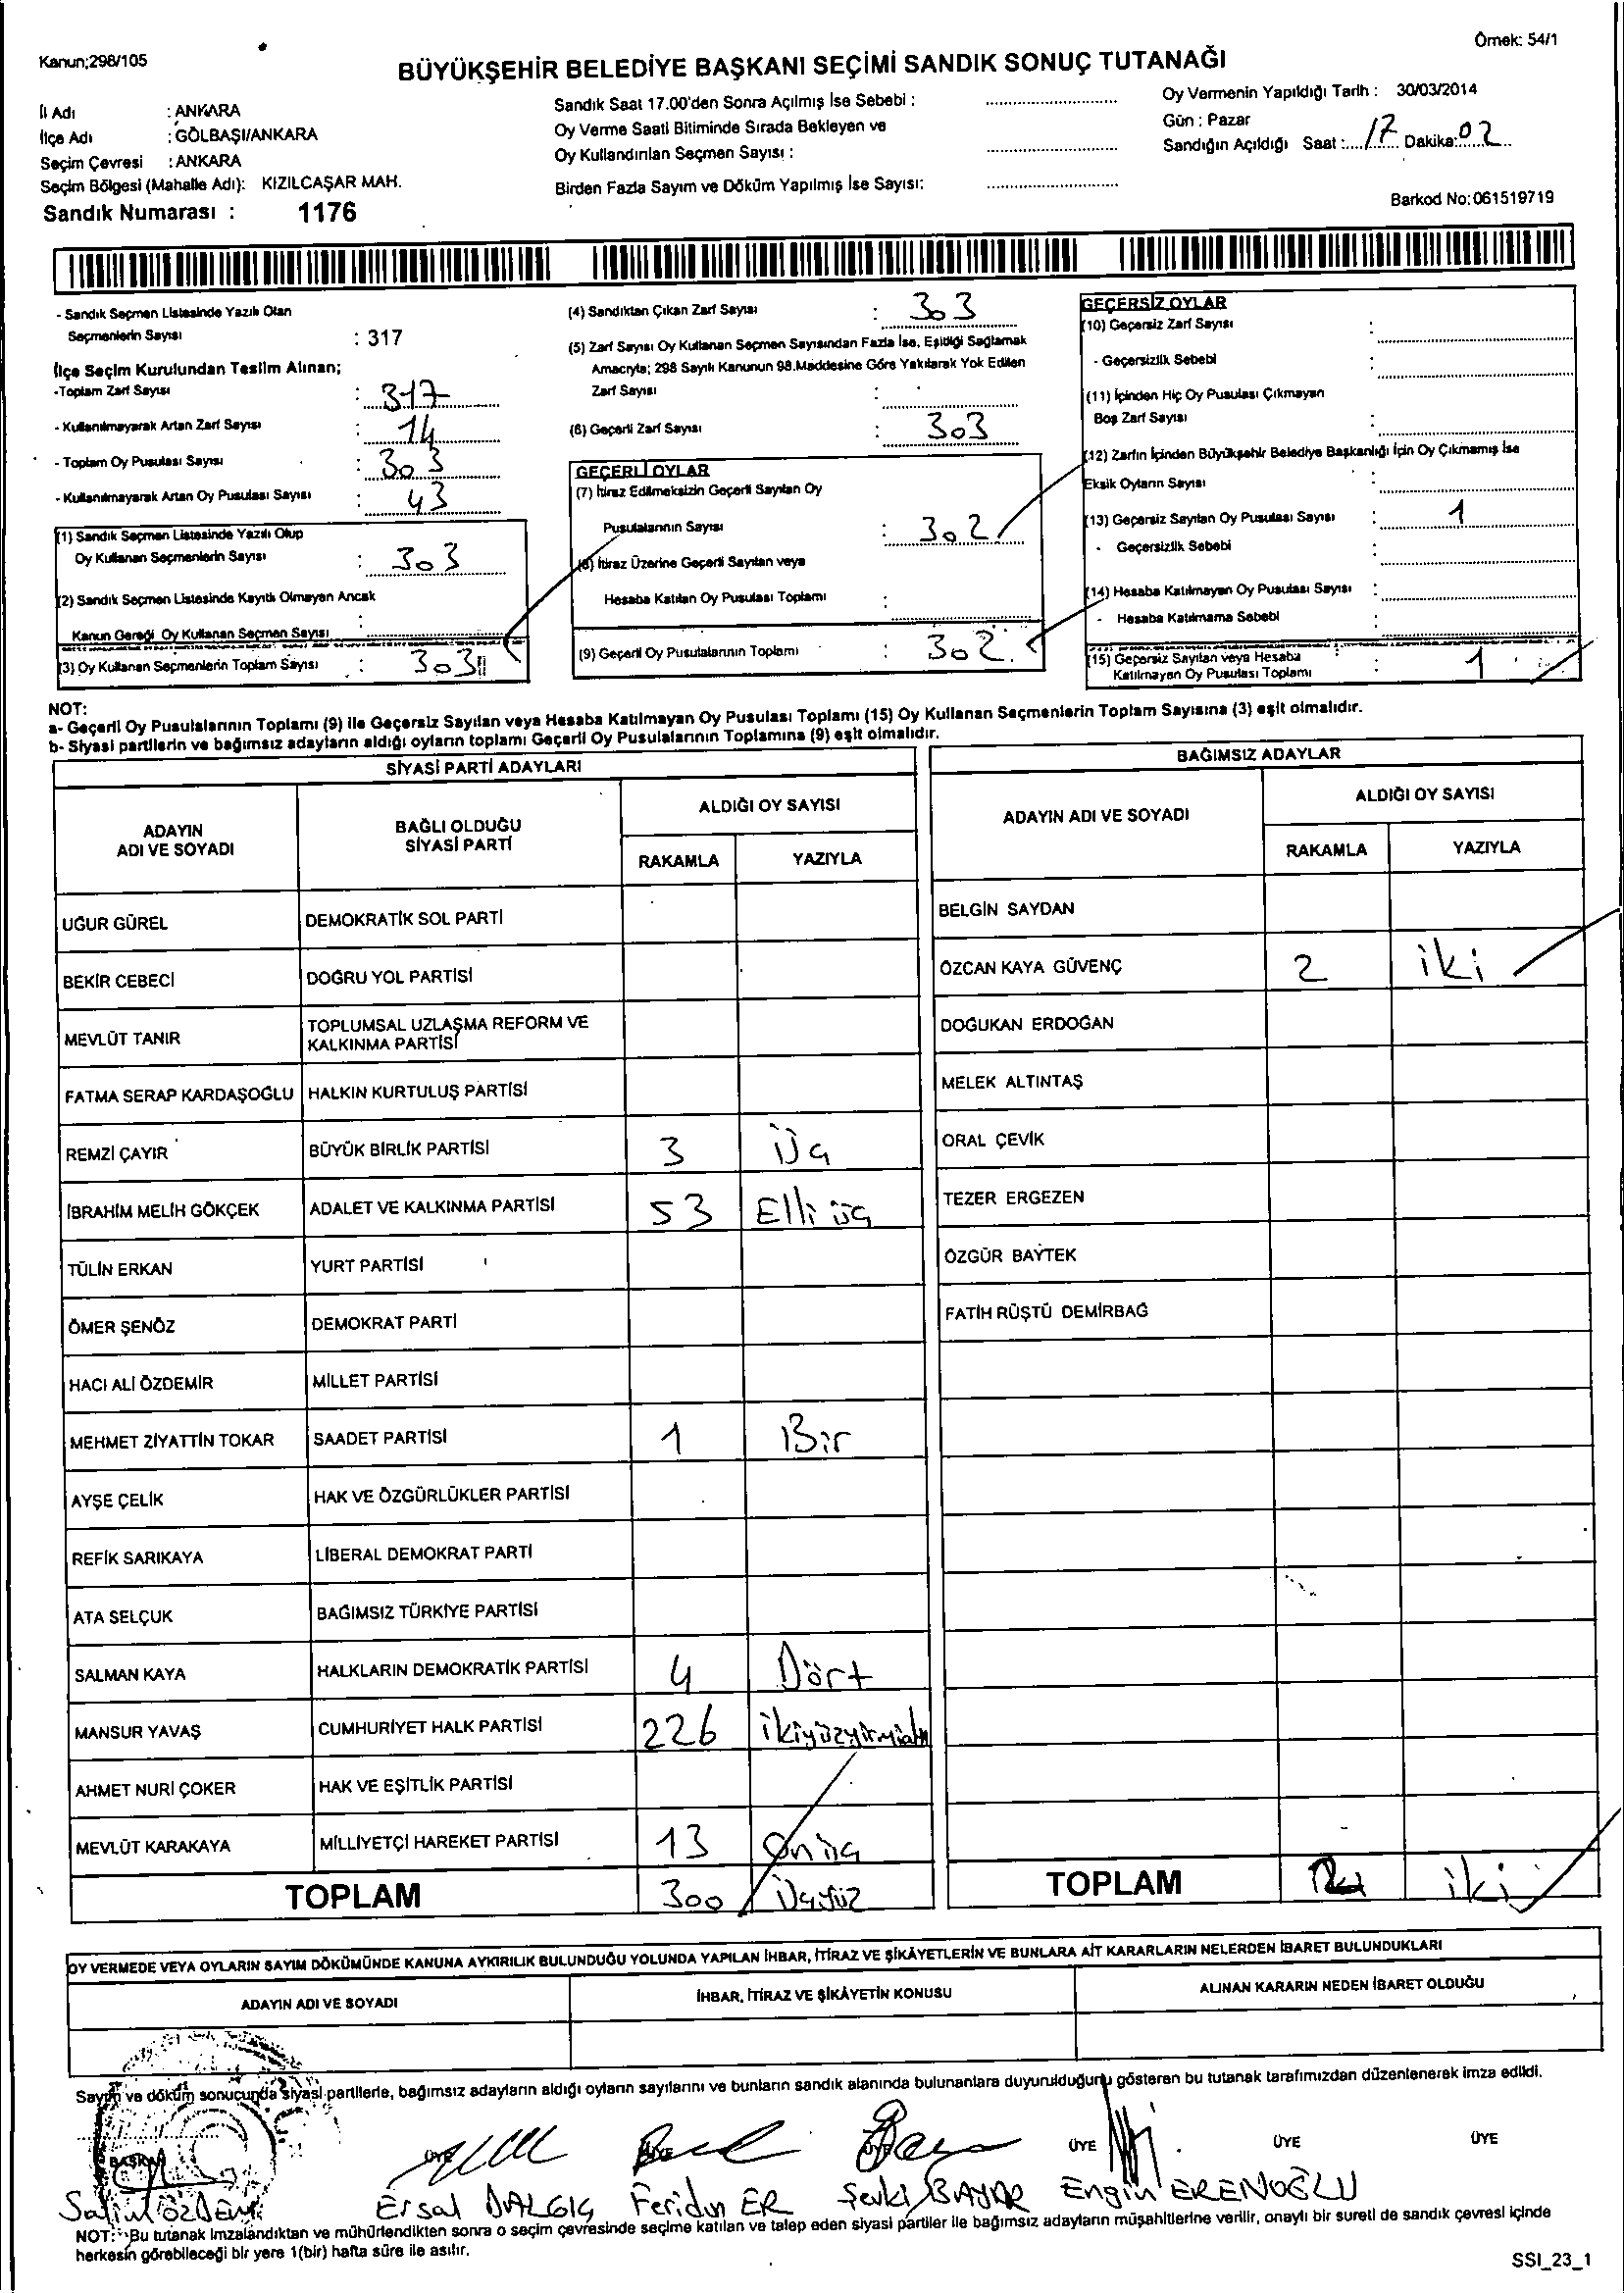 Kanun;298/105
Örnek: 54/1
BÜYÜKŞEHİR BELEDİYE BAŞKANI SEÇİMİ SANDIK SONUÇ TUTANAĞI
İl Adı : ANKARA
İlçe Adı : GÖLBAŞI/ANKARA
Seçim Çevresi : ANKARA
Seçim Bölgesi (Mahalle Adı): KIZILCAŞAR MAH.
Sandık Numarası : 1176
Sandık Saat 17.00'den Sonra Açılmış İse Sebebi :
Oy Verme Saati Bitiminde Sırada Bekleyen ve
Oy Kullandırılan Seçmen Sayısı :
Birden Fazla Sayım ve Döküm Yapılmış İse Sayısı:
Oy Vermenin Yapıldığı Tarih : 30/03/2014
Gün : Pazar
Sandığın Açıldığı Saat : 17 Dakika: 02
Barkod No:061519719
- Sandık Seçmen Listesinde Yazılı Olan
Seçmenlerin Sayısı : 317
İlçe Seçim Kurulundan Teslim Alınan;
-Toplam Zarf Sayısı : 317
- Kullanılmayarak Artan Zarf Sayısı : 14
- Toplam Oy Pusulası Sayısı : 303
- Kullanılmayarak Artan Oy Pusulası Sayısı : 43
(1) Sandık Seçmen Listesinde Yazılı Olup
Oy Kullanan Seçmenlerin Sayısı : 303
(2) Sandık Seçmen Listesinde Kayıtlı Olmayan Ancak
Kanun Gereği Oy Kullanan Seçmen Sayısı :
(3) Oy Kullanan Seçmenlerin Toplam Sayısı : 303
(4) Sandıktan Çıkan Zarf Sayısı : 303
(5) Zarf Sayısı Oy Kullanan Seçmen Sayısından Fazla İse, Eşitliği Sağlamak
Amacıyla; 298 Sayılı Kanunun 98.Maddesine Göre Yakılarak Yok Edilen
Zarf Sayısı :
(6) Geçerli Zarf Sayısı : 303
GEÇERLİ OYLAR
(7) İtiraz Edilmeksizin Geçerli Sayılan Oy
Pusulalarının Sayısı : 302
(8) İtiraz Üzerine Geçerli Sayılan veya
Hesaba Katılan Oy Pusulası Toplamı :
(9) Geçerli Oy Pusulalarının Toplamı : 302
GEÇERSİZ OYLAR
(10) Geçersiz Zarf Sayısı :
- Geçersizlik Sebebi :
(11) İçinden Hiç Oy Pusulası Çıkmayan
Boş Zarf Sayısı :
(12) Zarfın İçinden Büyükşehir Belediye Başkanlığı İçin Oy Çıkmamış İse
Eksik Oyların Sayısı :
(13) Geçersiz Sayılan Oy Pusulası Sayısı : 1
- Geçersizlik Sebebi :
(14) Hesaba Katılmayan Oy Pusulası Sayısı :
- Hesaba Katılmama Sebebi :
(15) Geçersiz Sayılan veya Hesaba
Katılmayan Oy Pusulası Toplamı : 1
NOT:
a- Geçerli Oy Pusulalarının Toplamı (9) ile Geçersiz Sayılan veya Hesaba Katılmayan Oy Pusulası Toplamı (15) Oy Kullanan Seçmenlerin Toplam Sayısına (3) eşit olmalıdır.
b- Siyasi partilerin ve bağımsız adayların aldığı oyların toplamı Geçerli Oy Pusulalarının Toplamına (9) eşit olmalıdır.
SİYASİ PARTİ ADAYLARI
ADAYIN ADI VE SOYADI
BAĞLI OLDUĞU SİYASİ PARTİ
ALDIĞI OY SAYISI
RAKAMLA YAZIYLA
UĞUR GÜREL DEMOKRATİK SOL PARTİ
BEKİR CEBECİ DOĞRU YOL PARTİSİ
MEVLÜT TANIR TOPLUMSAL UZLAŞMA REFORM VE KALKINMA PARTİSİ
FATMA SERAP KARDAŞOĞLU HALKIN KURTULUŞ PARTİSİ
REMZİ ÇAYIR BÜYÜK BİRLİK PARTİSİ 3 Üç
İBRAHİM MELİH GÖKÇEK ADALET VE KALKINMA PARTİSİ 53 Elli üç
TÜLİN ERKAN YURT PARTİSİ
ÖMER ŞENÖZ DEMOKRAT PARTİ
HACI ALİ ÖZDEMİR MİLLET PARTİSİ
MEHMET ZİYATTİN TOKAR SAADET PARTİSİ 1 Bir
AYŞE ÇELİK HAK VE ÖZGÜRLÜKLER PARTİSİ
REFİK SARIKAYA LİBERAL DEMOKRAT PARTİ
ATA SELÇUK BAĞIMSIZ TÜRKİYE PARTİSİ
SALMAN KAYA HALKLARIN DEMOKRATİK PARTİSİ 4 Dört
MANSUR YAVAŞ CUMHURİYET HALK PARTİSİ 226 ikiyüzyirmialtı
AHMET NURİ ÇOKER HAK VE EŞİTLİK PARTİSİ
MEVLÜT KARAKAYA MİLLİYETÇİ HAREKET PARTİSİ 13 Onüç
TOPLAM 300 Üçyüz
BAĞIMSIZ ADAYLAR
ADAYIN ADI VE SOYADI
ALDIĞI OY SAYISI
RAKAMLA YAZIYLA
BELGİN SAYDAN
ÖZCAN KAYA GÜVENÇ 2 iki
DOĞUKAN ERDOĞAN
MELEK ALTINTAŞ
ORAL ÇEVİK
TEZER ERGEZEN
ÖZGÜR BAYTEK
FATİH RÜŞTÜ DEMİRBAĞ
TOPLAM iki
OY VERMEDE VEYA OYLARIN SAYIM DÖKÜMÜNDE KANUNA AYKIRILIK BULUNDUĞU YOLUNDA YAPILAN İHBAR, İTİRAZ VE ŞİKÂYETLERİN VE BUNLARA AİT KARARLARIN NELERDEN İBARET BULUNDUKLARI
ADAYIN ADI VE SOYADI
İHBAR, İTİRAZ VE ŞİKÂYETİN KONUSU
ALINAN KARARIN NEDEN İBARET OLDUĞU
Sayım ve döküm sonucunda siyasi partilerle, bağımsız adayların aldığı oyların sayılarını ve bunların sandık alanında bulunanlara duyurulduğunu gösteren bu tutanak tarafımızdan düzenlenerek imza edildi.
BAŞKAN ÜYE ÜYE ÜYE ÜYE ÜYE ÜYE
Salim ÖZDEMİR Ersal DALGIÇ Feridun ER Şevki BAYAR Engin ERENOĞLU
NOT: Bu tutanak imzalandıktan ve mühürlendikten sonra o seçim çevresinde seçime katılan ve talep eden siyasi partiler ile bağımsız adayların müşahitlerine verilir, onaylı bir sureti de sandık çevresi içinde
herkesin görebileceği bir yere 1(bir) hafta süre ile asılır.
SSI_23_1